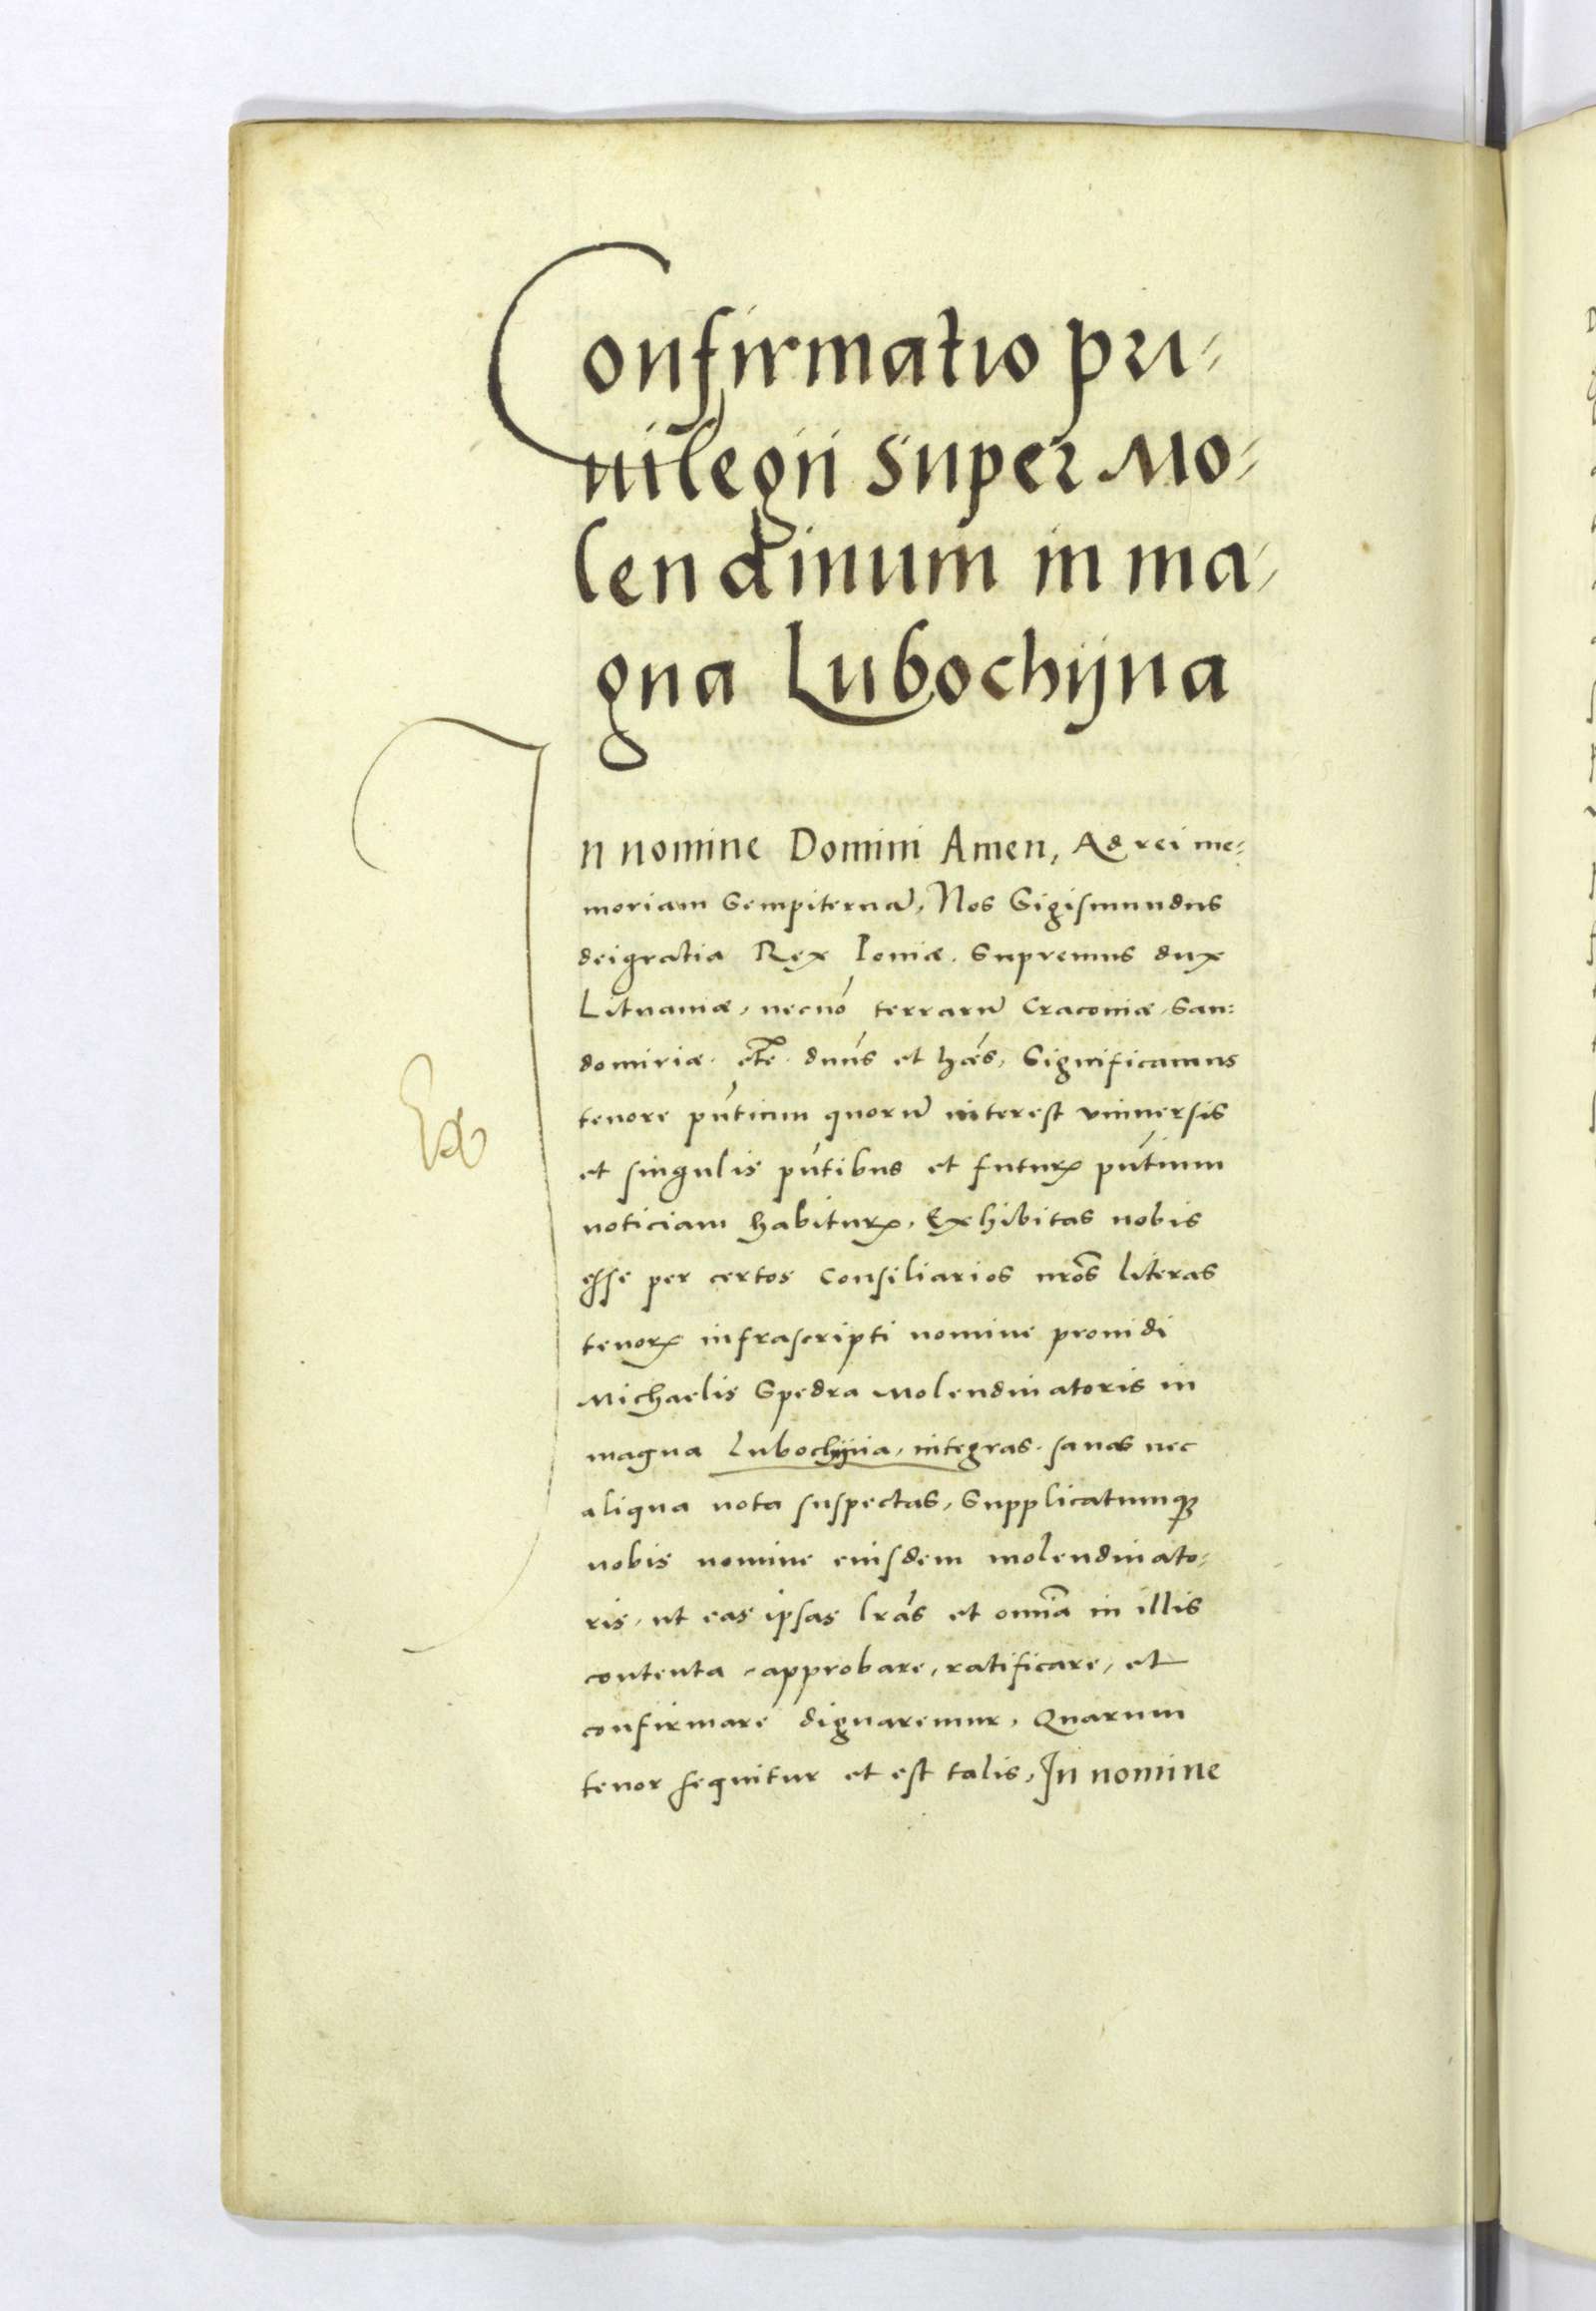 Confirmatio pri-
uilegii super Mo-
lendinum in ma-
gna Lubochÿna
In nomine Domini Amen, Ad rei me-
moriam sempiternā, Nos Sigismundus
dei gratia Rex Poniæ. Supremus dux
Lituaniæ, necnō terrarū Craconiæ, San-
domiriæ. etc̄. dnūs et hǣs, Significamus
tenore pn̄tium quorū interest vniuersis
et singulis pn̄tibus et futurꝝ pn̄tium
noticiam habiturꝝ, Exhibitas nobis
esse per certos Consiliarios nrōs literas
tenorꝝ infrascripti nomine prouidi
Michaelis Spedra Molendinatoris in
magna Lubochÿna, integras. sanas nec
aliqua nota suspectas, Supplicatumqꝫ
nobis nomine eiusdem molendinato-
ris, ut eas ipsas lrās et omnīa in illis
contenta, approbare, ratificare, et
confirmare dignaremur, Quarum
tenor sequitur et est talis, In nomine